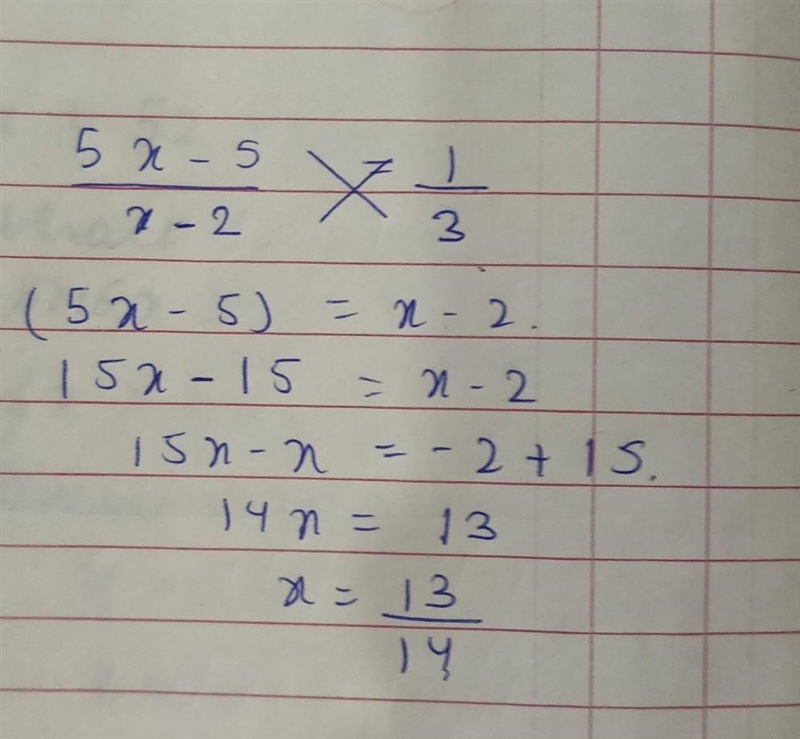 5x - 5 / x - 2 = 1 / 3
(5x - 5) = x - 2.
15x - 15 = x - 2
15x - x = - 2 + 15.
14x = 13
x = 13 / 14